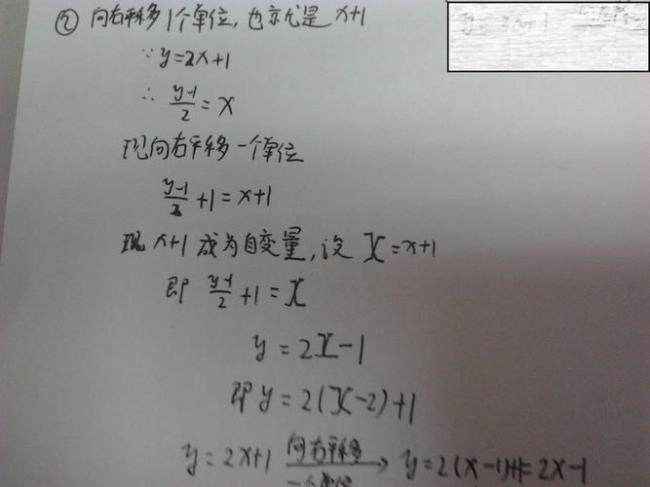 ② 向右平移1个单位,也就是x+1
∵y=2x+1
∴ (y-1)/2=x
现向右平移一个单位
(y-1)/2+1=x+1
现x+1成为自变量,设X=x+1
即 (y-1)/2+1=X
y=2X-1
即y=2(X-2)+1
y=2x+1 向右平移一个单位→ y=2(x-1)+1=2x-1